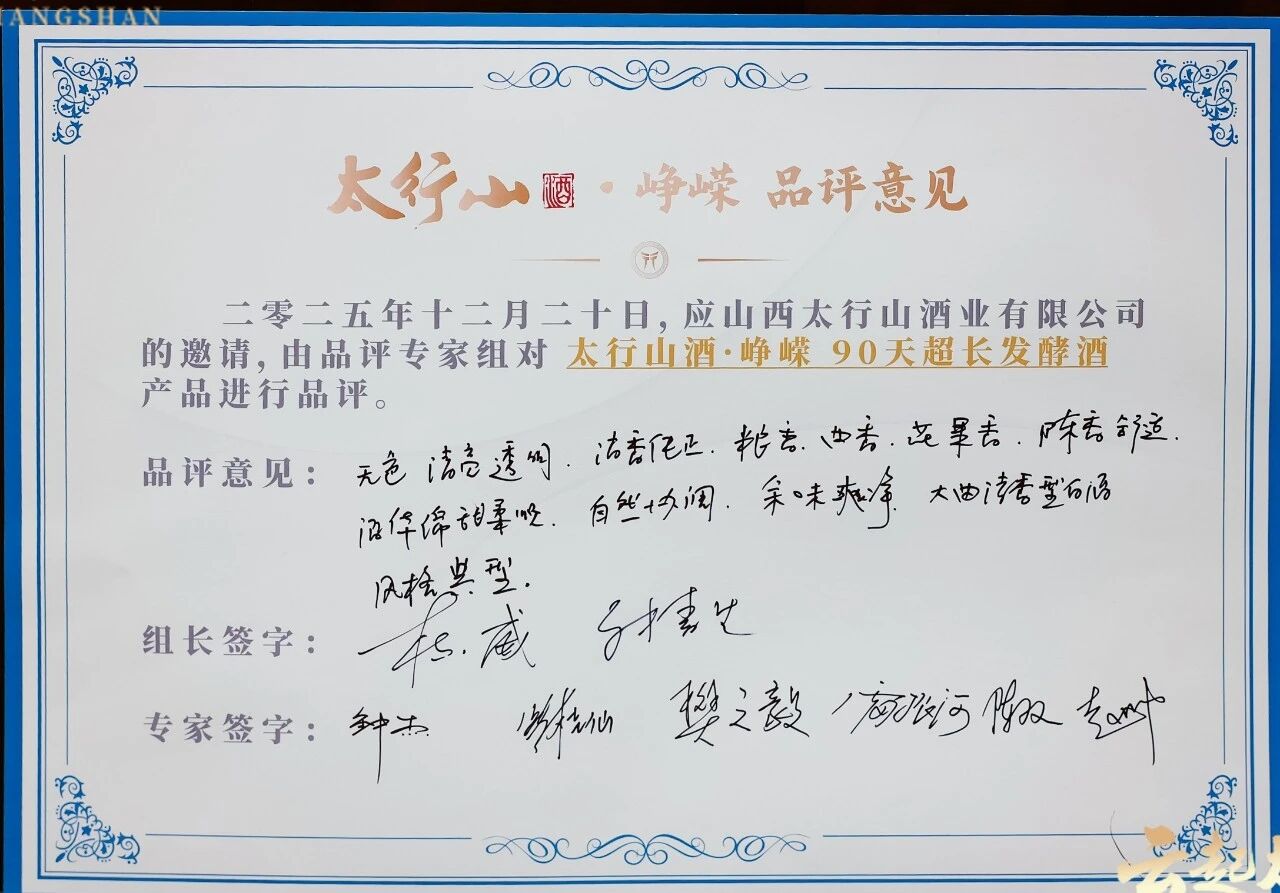 HANGSHAN
太行山酒·峥嵘 品评意见
二零二五年十二月二十日,应山西太行山酒业有限公司
的邀请,由品评专家组对 太行山酒·峥嵘 90天超长发酵酒
产品进行品评。
品评意见: 无色清亮透明、清香纯正、粮香、曲香、花果香、陈香舒适、
酒体绵甜柔顺、自然协调、余味爽净、大曲清香型白酒
风格典型.
组长签字:
专家签字: 钟杰 樊之毅 陈双
云起